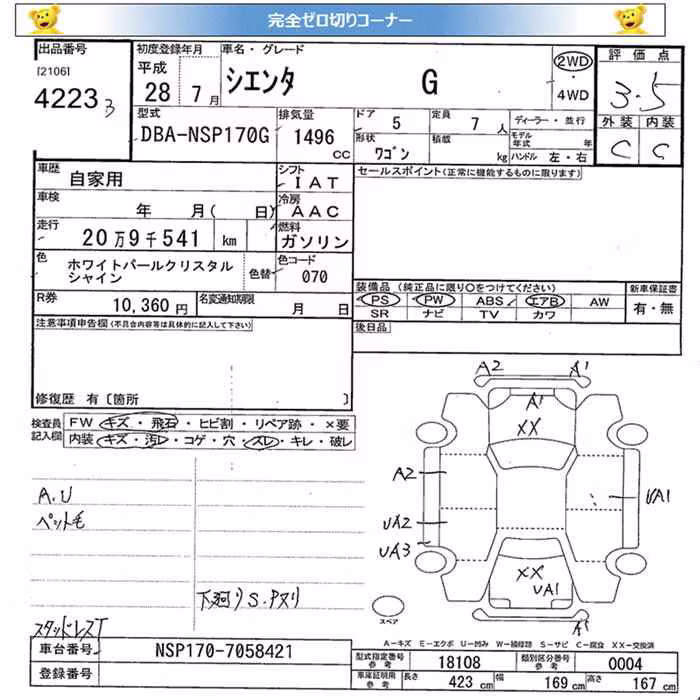 完全ゼロ切りコーナー
出品番号
[2106]
4223 3
初度登録年月
平成
28 7 月
車名・グレード
シエンタ G
2WD
・
4WD
評価点
3.5
外装 内装
C C
型式
DBA-NSP170G
排気量
1496
CC
ドア 5
定員 7 人
形状 ワゴン
積載 kg
ディーラー・並行
モデル年式 年
ハンドル 左・右
車歴
自家用
シフト
IAT
セールスポイント(正常に機能するものに限ります)
車検
年 月( 日)
冷房
AAC
走行
20万9千541 km
燃料
ガソリン
色
ホワイトパールクリスタル
シャイン
色替
色コード
070
装備品 (純正品に限り○をつけてください)
新車保証書
PS PW ABS エアB AW
有・無
SR ナビ TV カワ
R券
10,360 円
名変通知期限
月 日
後日品
注意事項申告欄(不具合内容等は具体的に記入して下さい)
修復歴 有〔箇所 〕
検査員
記入欄
FW キズ・飛石・ヒビ割・リペア跡・×要
内装 キズ・汚レ・コゲ・穴・スレ・キレ・破レ
A2 A1
A1
XX
A2
UA1
UA2
UA3
XX
UA1
A1
A.U
ペット毛
下廻りS.Pヌリ
スタッドレスT
スペア
A-キズ E-エクボ U-凹み W-補修跡 S-サビ C-腐食 XX-交換済
車台番号
NSP170-7058421
登録番号
型式指定番号
参考
18108
類別区分番号
参考
0004
車庫証明用
参考
長さ 423 cm
幅 169 cm
高さ 167 cm